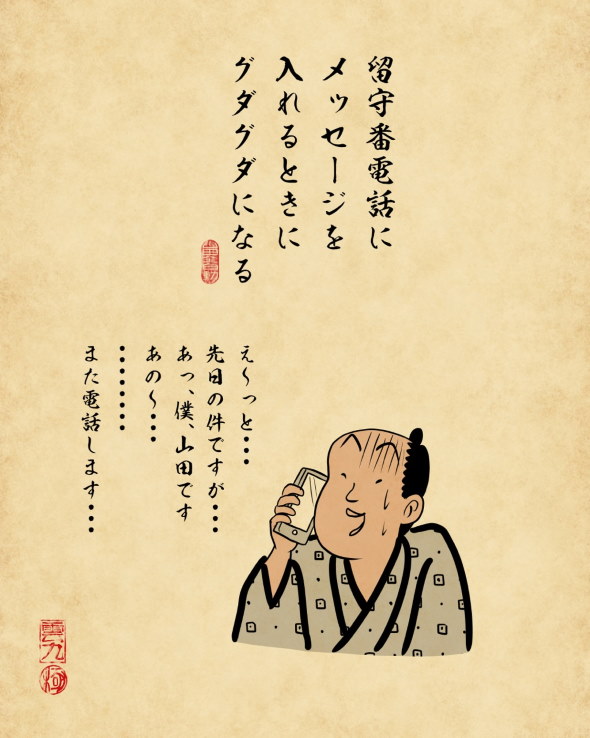 留守番電話に
メッセージを
入れるときに
グダグダになる
え〜っと・・・
先日の件ですが・・・
あっ、僕、山田です
あの〜・・・
・・・・・・・・
また電話します・・・